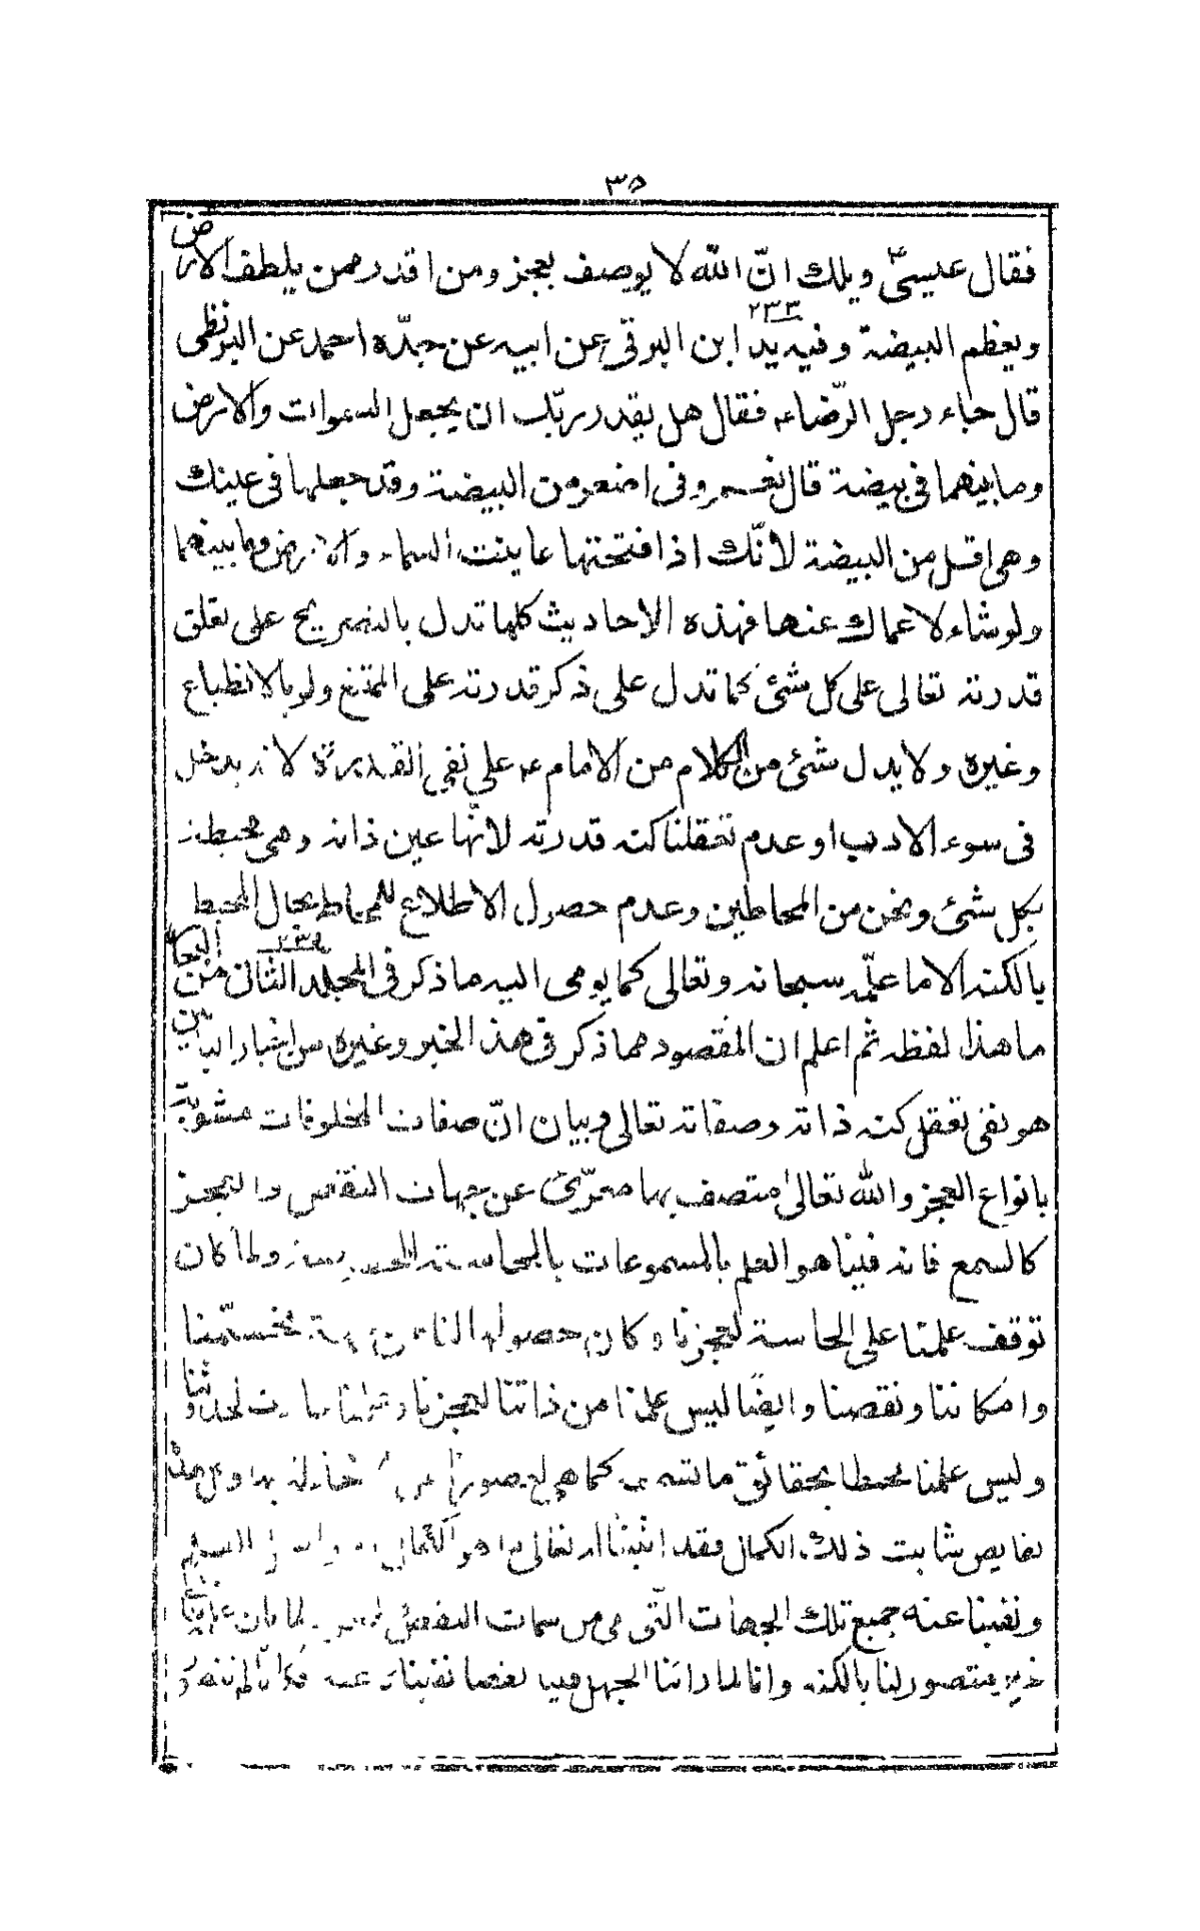 ٣٥
فقال عيسىٰ ويلك انّ اللّه لا يوصف بعجز ومن اقدر ممن يلطف الارض
ويعظم البيضة وفيه يد ٢٣٣ ابن البرقى عن ابيه عن جدّه احمد عن البزنطى
قال جاء رجل الرّضاءه فقال هل يقدر ربّك ان يجعل السموات والارض
وما بينهما فى بيضة قال نعم وفى اصغر من البيضة وقد جعلها فى عينك
وهى اقل من البيضة لانّك اذا فتحتها عاينت السماء والارض وما بينهما
ولو شاء لاعماك عنها فهذه الاحاديث كلها تدل بالتصريح على تعلق
قدرته تعالى على كل شئ كما تدل على ذكر قدرته على الممتنع ولو بالانطباع
وغيره ولا يدل شئ من الكلام من الامام ءم على نفى القدرة لانه يدخل
فى سوء الادب او عدم تعقلنا كنه قدرته لانّها عين ذاته وهى محيطة
بكل شئ ونحن من المحاطين وعدم حصول الاطلاع للمحاط بحال المحيط
بالكنه الا ما علّمه سبحانه وتعالى كما يومى اليه ما ذكر فى المجلد الثانى من البحار
ما هذا لفظه ثم اعلم ان المقصود مما ذكر فى هذا الخبر وغيره من اخبار البابين
هو نفى تعقل كنه ذاته وصفاته تعالى وبيان انّ صفات المخلوقات مشوبة
بانواع العجز والله تعالىٰ متصف بها معرّى عن جهات النقص والعجز
كالسمع فانه فينا هو العلم بالمسموعات بالحاسة ولما كان
توقف علمنا على الحاسة لعجزنا وكان حصولها لنا
وامكاننا ونقصنا وايضًا ليس علمنا من ذاتنا لعجزنا لحدوثنا
وليس علمنا محيطا بحقائق ما نسمعه كما هى
نقايص شابت ذلك الكمال فقد اثبتنا له تعالى ما هو الكمال
ونفينا عنه جميع تلك الجهات الّتى هى من سمات النقص
غير متصور لنا بالكنه وانا لما راينا الجهل فينا نقصا نفيناه عنه